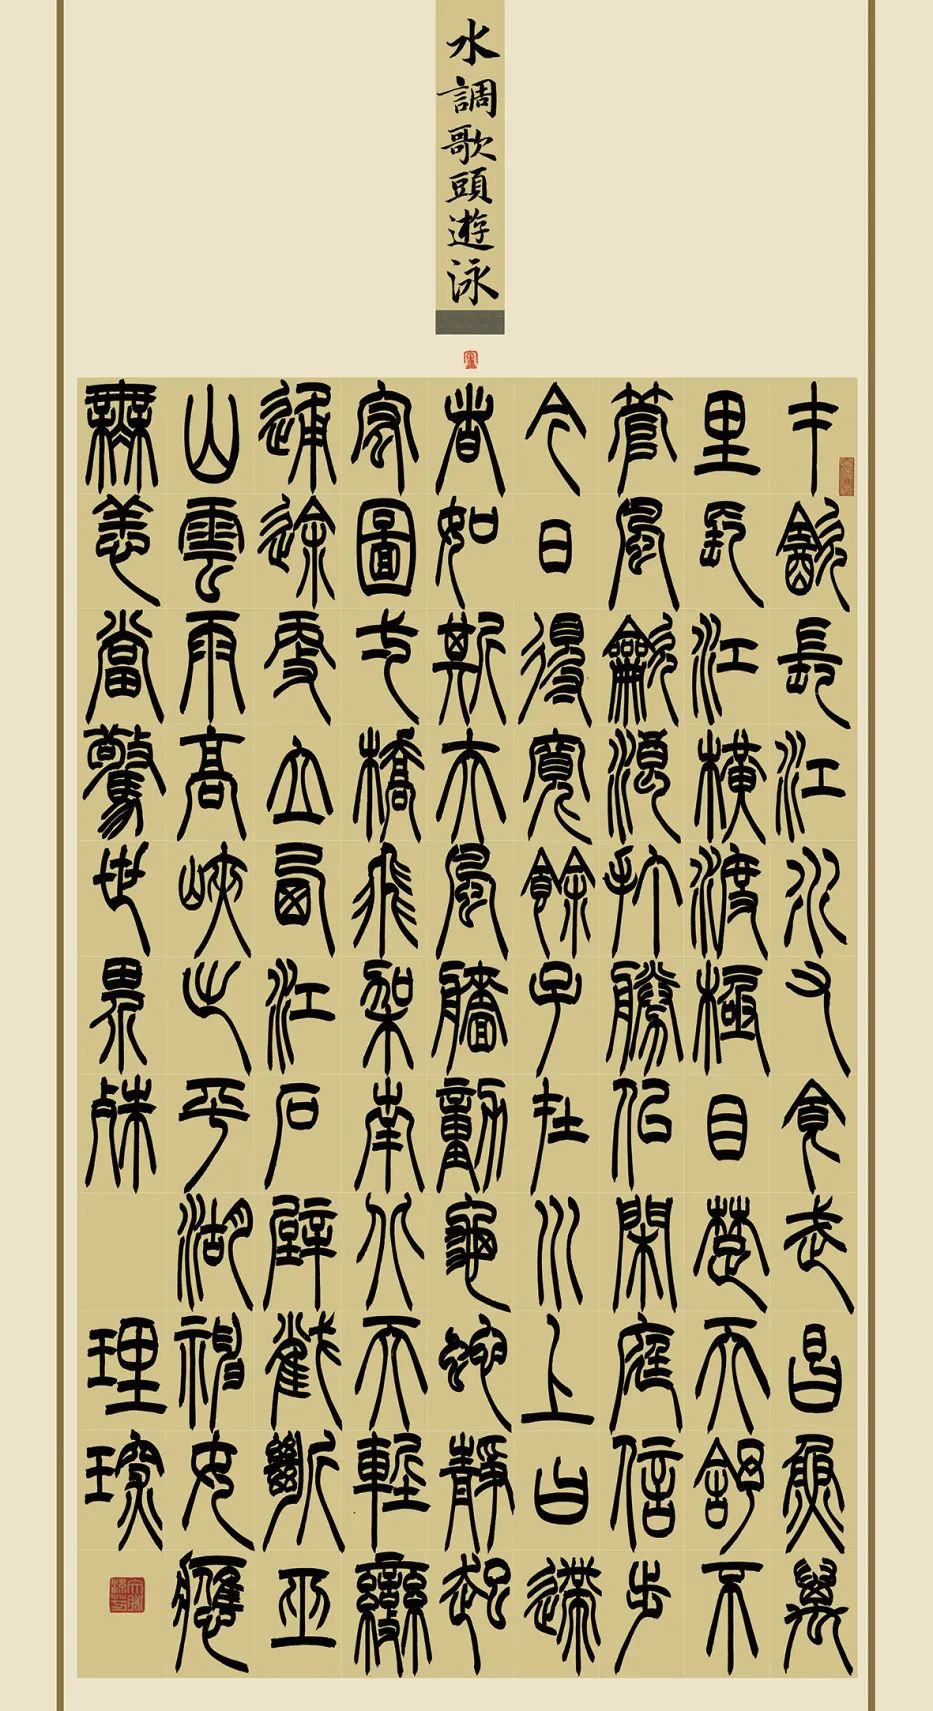 水調歌頭遊泳
才飲長江水又食武昌魚萬
里長江橫渡極目楚天舒不
管風龡浪打勝似閑庭信步
今日得寬餘子在川上曰逝
者如斯夫風檣動龜蛇靜起
宏圖一橋飛架南北天塹變
通途更立西江石壁截斷巫
山雲雨高峽出平湖神女應
無恙當驚世界殊
理琛